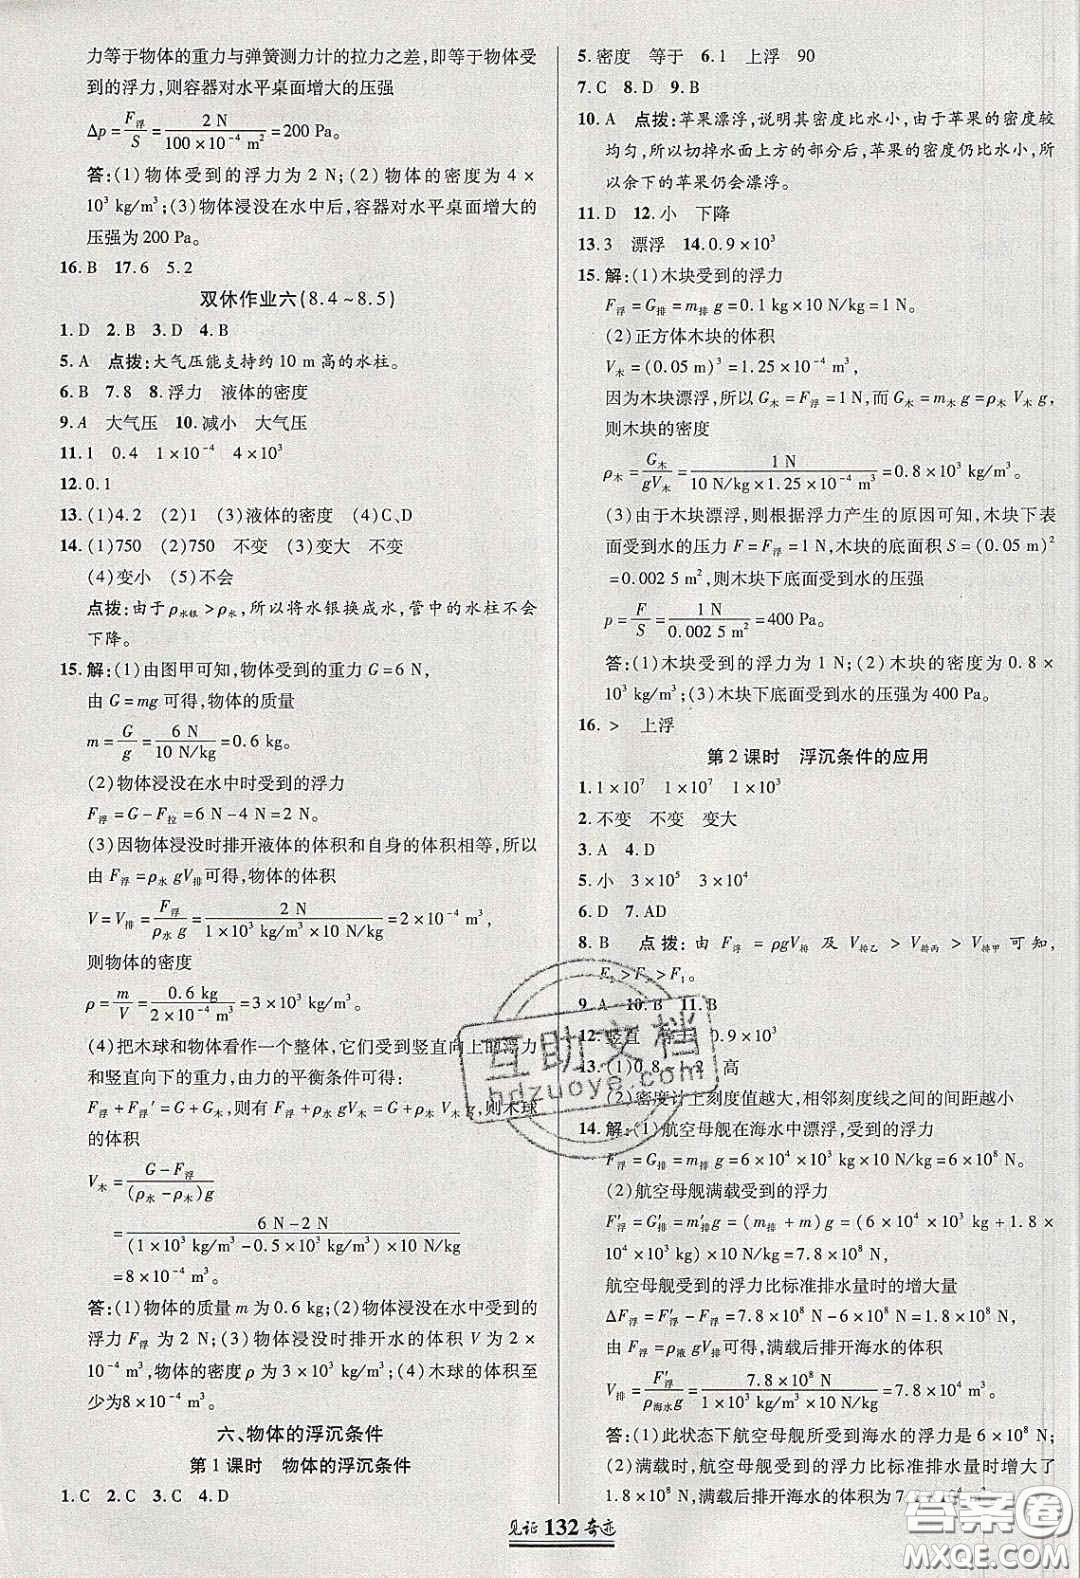 力等于物体的重力与弹簧测力计的拉力之差,即等于物体
受到的浮力,则容器对水平桌面增大的压强
Δp=F浮/S=2 N/(100×10⁻⁴ m²)=200 Pa。
答:(1)物体受到的浮力为 2 N;(2)物体的密度为 4×
10³ kg/m³;(3)物体浸没在水中后,容器对水平桌面增大的
压强为 200 Pa。
16.B 17.6 5.2
双休作业六(8.4~8.5)
1.D 2.B 3.D 4.B
5.A 点拨:大气压能支持约 10 m 高的水柱。
6.B 7.8 8.浮力 液体的密度
9.A 大气压 10.减小 大气压
11.1 0.4 1×10⁻⁴ 4×10³
12.0.1
13.(1)4.2 (2)1 (3)液体的密度 (4)C、D
14.(1)750 (2)750 不变 (3)变大 不变
(4)变小 (5)不会
点拨:由于ρ水银>ρ水,所以将水银换成水,管中的水柱不会
下降。
15.解:(1)由图甲可知,物体受到的重力 G=6 N,
由 G=mg 可得,物体的质量
m=G/g=6 N/(10 N/kg)=0.6 kg。
(2)物体浸没在水中时受到的浮力
F浮=G-F拉=6 N-4 N=2 N。
(3)因物体浸没时排开液体的体积和自身的体积相等,所以
由 F浮=ρ水 gV排可得,物体的体积
V=V排=F浮/(ρ水 g)=2 N/(1×10³ kg/m³×10 N/kg)=2×10⁻⁴ m³,
则物体的密度
ρ=m/V=0.6 kg/(2×10⁻⁴ m³)=3×10³ kg/m³。
(4)把木球和物体看作一个整体,它们受到竖直向上的浮力
和竖直向下的重力,由力的平衡条件可得:
F浮+F浮′=G+G木,则有 F浮+ρ水 gV木=G+ρ木 V木 g,则木球
的体积
V木=(G-F浮)/((ρ水-ρ木)g)
=(6 N-2 N)/((1×10³ kg/m³-0.5×10³ kg/m³)×10 N/kg)
=8×10⁻⁴ m³。
答:(1)物体的质量 m 为 0.6 kg;(2)物体浸没在水中受到的
浮力 F浮 为 2 N;(3)物体浸没时排开水的体积 V 为 2×
10⁻⁴ m³,物体的密度 ρ 为 3×10³ kg/m³;(4)木球的体积至
少为8×10⁻⁴ m³。
六、物体的浮沉条件
第 1 课时 物体的浮沉条件
1.C 2.C 3.C 4.D
5.密度 等于 6.1 上浮 90
7.C 8.D 9.B
10.A 点拨:苹果漂浮,说明其密度比水小,由于苹果的密度较
均匀,所以切掉水面上方的部分后,苹果的密度仍比水小,所
以余下的苹果仍会漂浮。
11.D 12.小 下降
13.3 漂浮 14.0.9×10³
15.解:(1)木块受到的浮力
F浮=G排=m排 g=0.1 kg×10 N/kg=1 N。
(2)正方体木块的体积
V木=(0.05 m)³=1.25×10⁻⁴ m³,
因为木块漂浮,所以 G木=F浮=1 N,而 G木=m木 g=ρ木 V木 g,
则木块的密度
ρ木=G木/(gV木)=1 N/(10 N/kg×1.25×10⁻⁴ m³)=0.8×10³ kg/m³。
(3)由于木块漂浮,则根据浮力产生的原因可知,木块下表
面受到水的压力 F=F浮=1 N,木块的底面积 S=(0.05 m)²
=0.002 5 m²,则木块下底面受到水的压强
p=F/S=1 N/(0.002 5 m²)=400 Pa。
答:(1)木块受到的浮力为 1 N;(2)木块的密度为 0.8×
10³ kg/m³;(3)木块下底面受到水的压强为 400 Pa。
16.> 上浮
第 2 课时 浮沉条件的应用
1.1×10⁷ 1×10⁷ 1×10³
2.不变 不变 变大
3.A 4.D
5.小 3×10⁵ 3×10⁴
6.D 7.AD
8.B 点拨:由 F浮=ρgV排 及 V排乙>V排丙>V排甲 可知,
F₂>F₃>F₁。
9.A 10.B 11.B
12.竖直 等于 0.9×10³
13.(1)0.8 1.2 高
(2)密度计上刻度值越大,相邻刻度线之间的间距越小
14.解:(1)航空母舰在海水中漂浮,受到的浮力
F浮=G排=m排 g=6×10⁴×10³ kg×10 N/kg=6×10⁸ N。
(2)航空母舰满载受到的浮力
F′浮=G′排=m′排g=(m排+m)g=(6×10⁴×10³ kg+1.8×
10⁴×10³ kg)×10 N/kg=7.8×10⁸ N,
航空母舰受到的浮力比标准排水量时的增大量
ΔF浮=F′浮-F浮=7.8×10⁸ N-6×10⁸ N=1.8×10⁸ N,
由 F浮=ρ液 gV排可得,满载后排开海水的体积
V排=F′浮/(ρ海水g)=7.8×10⁸ N/(1×10³ kg/m³×10 N/kg)=7.8×10⁴ m³。
答:(1)此状态下航空母舰所受到海水的浮力是 6×10⁸ N;
(2)满载时,航空母舰受到的浮力比标准排水量时增大了
1.8×10⁸ N,满载后排开海水的体积为7.8×10⁴ m³。
见证 132 奇迹
互助文档
hdzuoye.com
答案圈
MXQE.COM